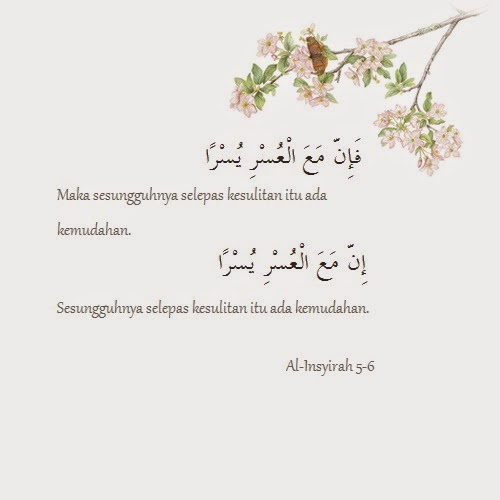 فَإِنّ مَعَ الْعُسْرِ يُسْرًا
Maka sesungguhnya selepas kesulitan itu ada
kemudahan.
إِنّ مَعَ الْعُسْرِ يُسْرًا
Sesungguhnya selepas kesulitan itu ada kemudahan.
Al-Insyirah 5-6